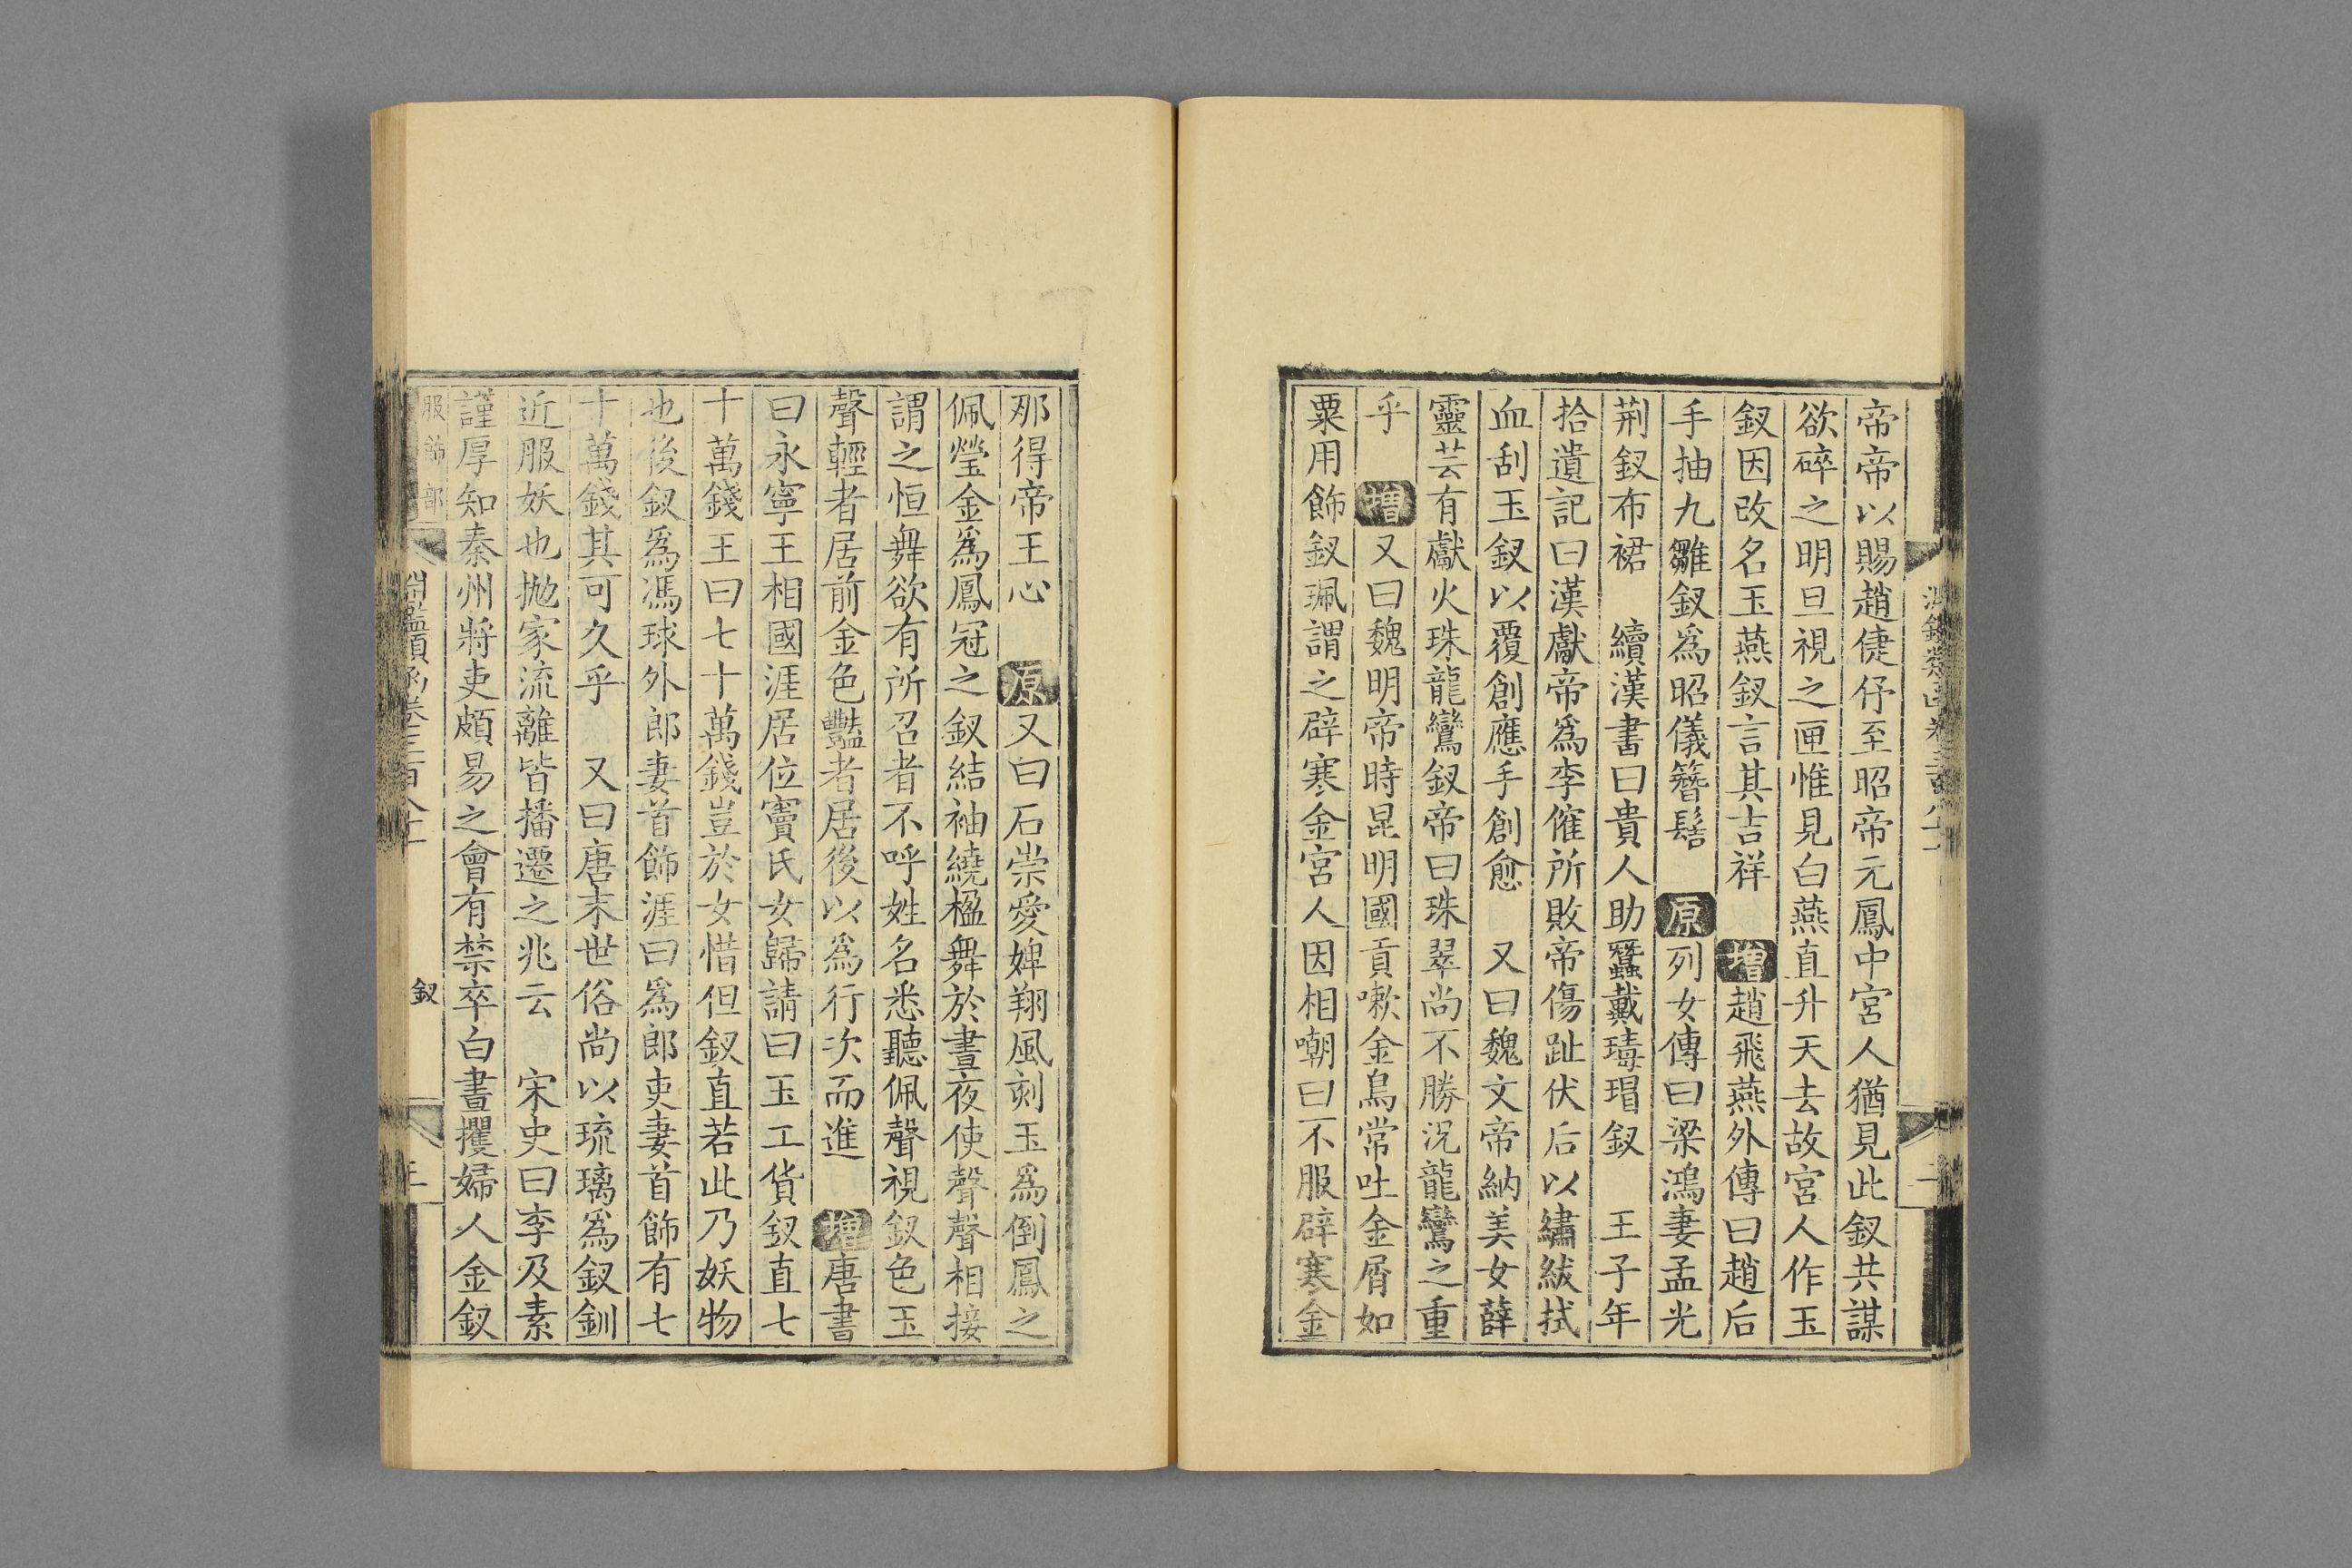 帝帝以賜趙倢伃至昭帝元鳳中宮人猶見此釵共謀
欲碎之明旦視之匣惟見白燕直升天去故宮人作玉
釵因改名玉燕釵言其吉祥 增趙飛燕外傳曰趙后
手抽九雛釵爲昭儀簪髻 原列女傳曰梁鴻妻孟光
荆釵布裙 續漢書曰貴人助蠶戴瑇瑁釵 王子年
拾遺記曰漢獻帝爲李傕所敗帝傷趾伏后以繡紱拭
血刮玉釵以覆創應手創愈 又曰魏文帝納美女薛
靈芸有獻火珠龍鸞釵帝曰珠翠尚不勝況龍鸞之重
乎 增又曰魏明帝時昆明國貢嗽金鳥常吐金屑如
粟用飾釵珮謂之辟寒金宮人因相嘲曰不服辟寒金
那得帝王心 原又曰石崇愛婢翔風刻玉爲倒鳳之
佩瑩金爲鳳冠之釵結袖繞楹舞於晝夜使聲聲相接
謂之恒舞欲有所召者不呼姓名悉聽佩聲視釵色玉
聲輕者居前金色豔者居後以爲行次而進 增唐書
曰永寧王相國涯居位竇氏女歸請曰玉工貨釵直七
十萬錢王曰七十萬錢豈於女惜但釵直若此乃妖物
也後釵爲馮球外郎妻首飾涯曰爲郎吏妻首飾有七
十萬錢其可久乎 又曰唐末世俗尚以琉璃爲釵釧
近服妖也抛家流離皆播遷之兆云 宋史曰李及素
謹厚知秦州將吏頗易之會有禁卒白晝攫婦人金釵
服飾部 淵鑑類函卷三百八十一 釵